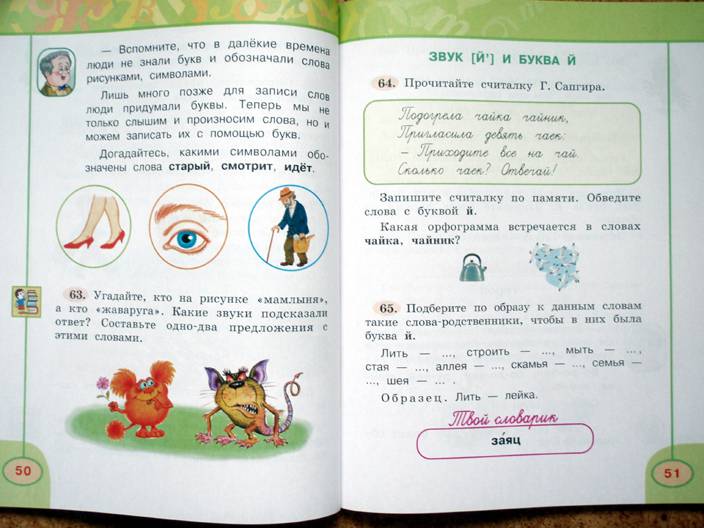 — Вспомните, что в далёкие времена
люди не знали букв и обозначали слова
рисунками, символами.
Лишь много позже для записи слов
люди придумали буквы. Теперь мы не
только слышим и произносим слова, но и
можем записать их с помощью букв.
Догадайтесь, какими символами обо-
значены слова старый, смотрит, идёт.
63. Угадайте, кто на рисунке «мамлыня»,
а кто «жаваруга». Какие звуки подсказали
ответ? Составьте одно-два предложения с
этими словами.
50
ЗВУК [Й’] И БУКВА Й
64. Прочитайте считалку Г. Сапгира.
Подогрела чайка чайник,
Пригласила девять чаек:
– Приходите все на чай.
Сколько чаек? Отвечай!
Запишите считалку по памяти. Обведите
слова с буквой й.
Какая орфограмма встречается в словах
чайка, чайник?
65. Подберите по образцу к данным словам
такие слова-родственники, чтобы в них была
буква й.
Лить — ..., строить — ..., мыть — ...,
стая — ..., аллея — ..., скамья — ..., семья —
..., шея — ... .
Образец. Лить — лейка.
Твой словарик
за́яц
51